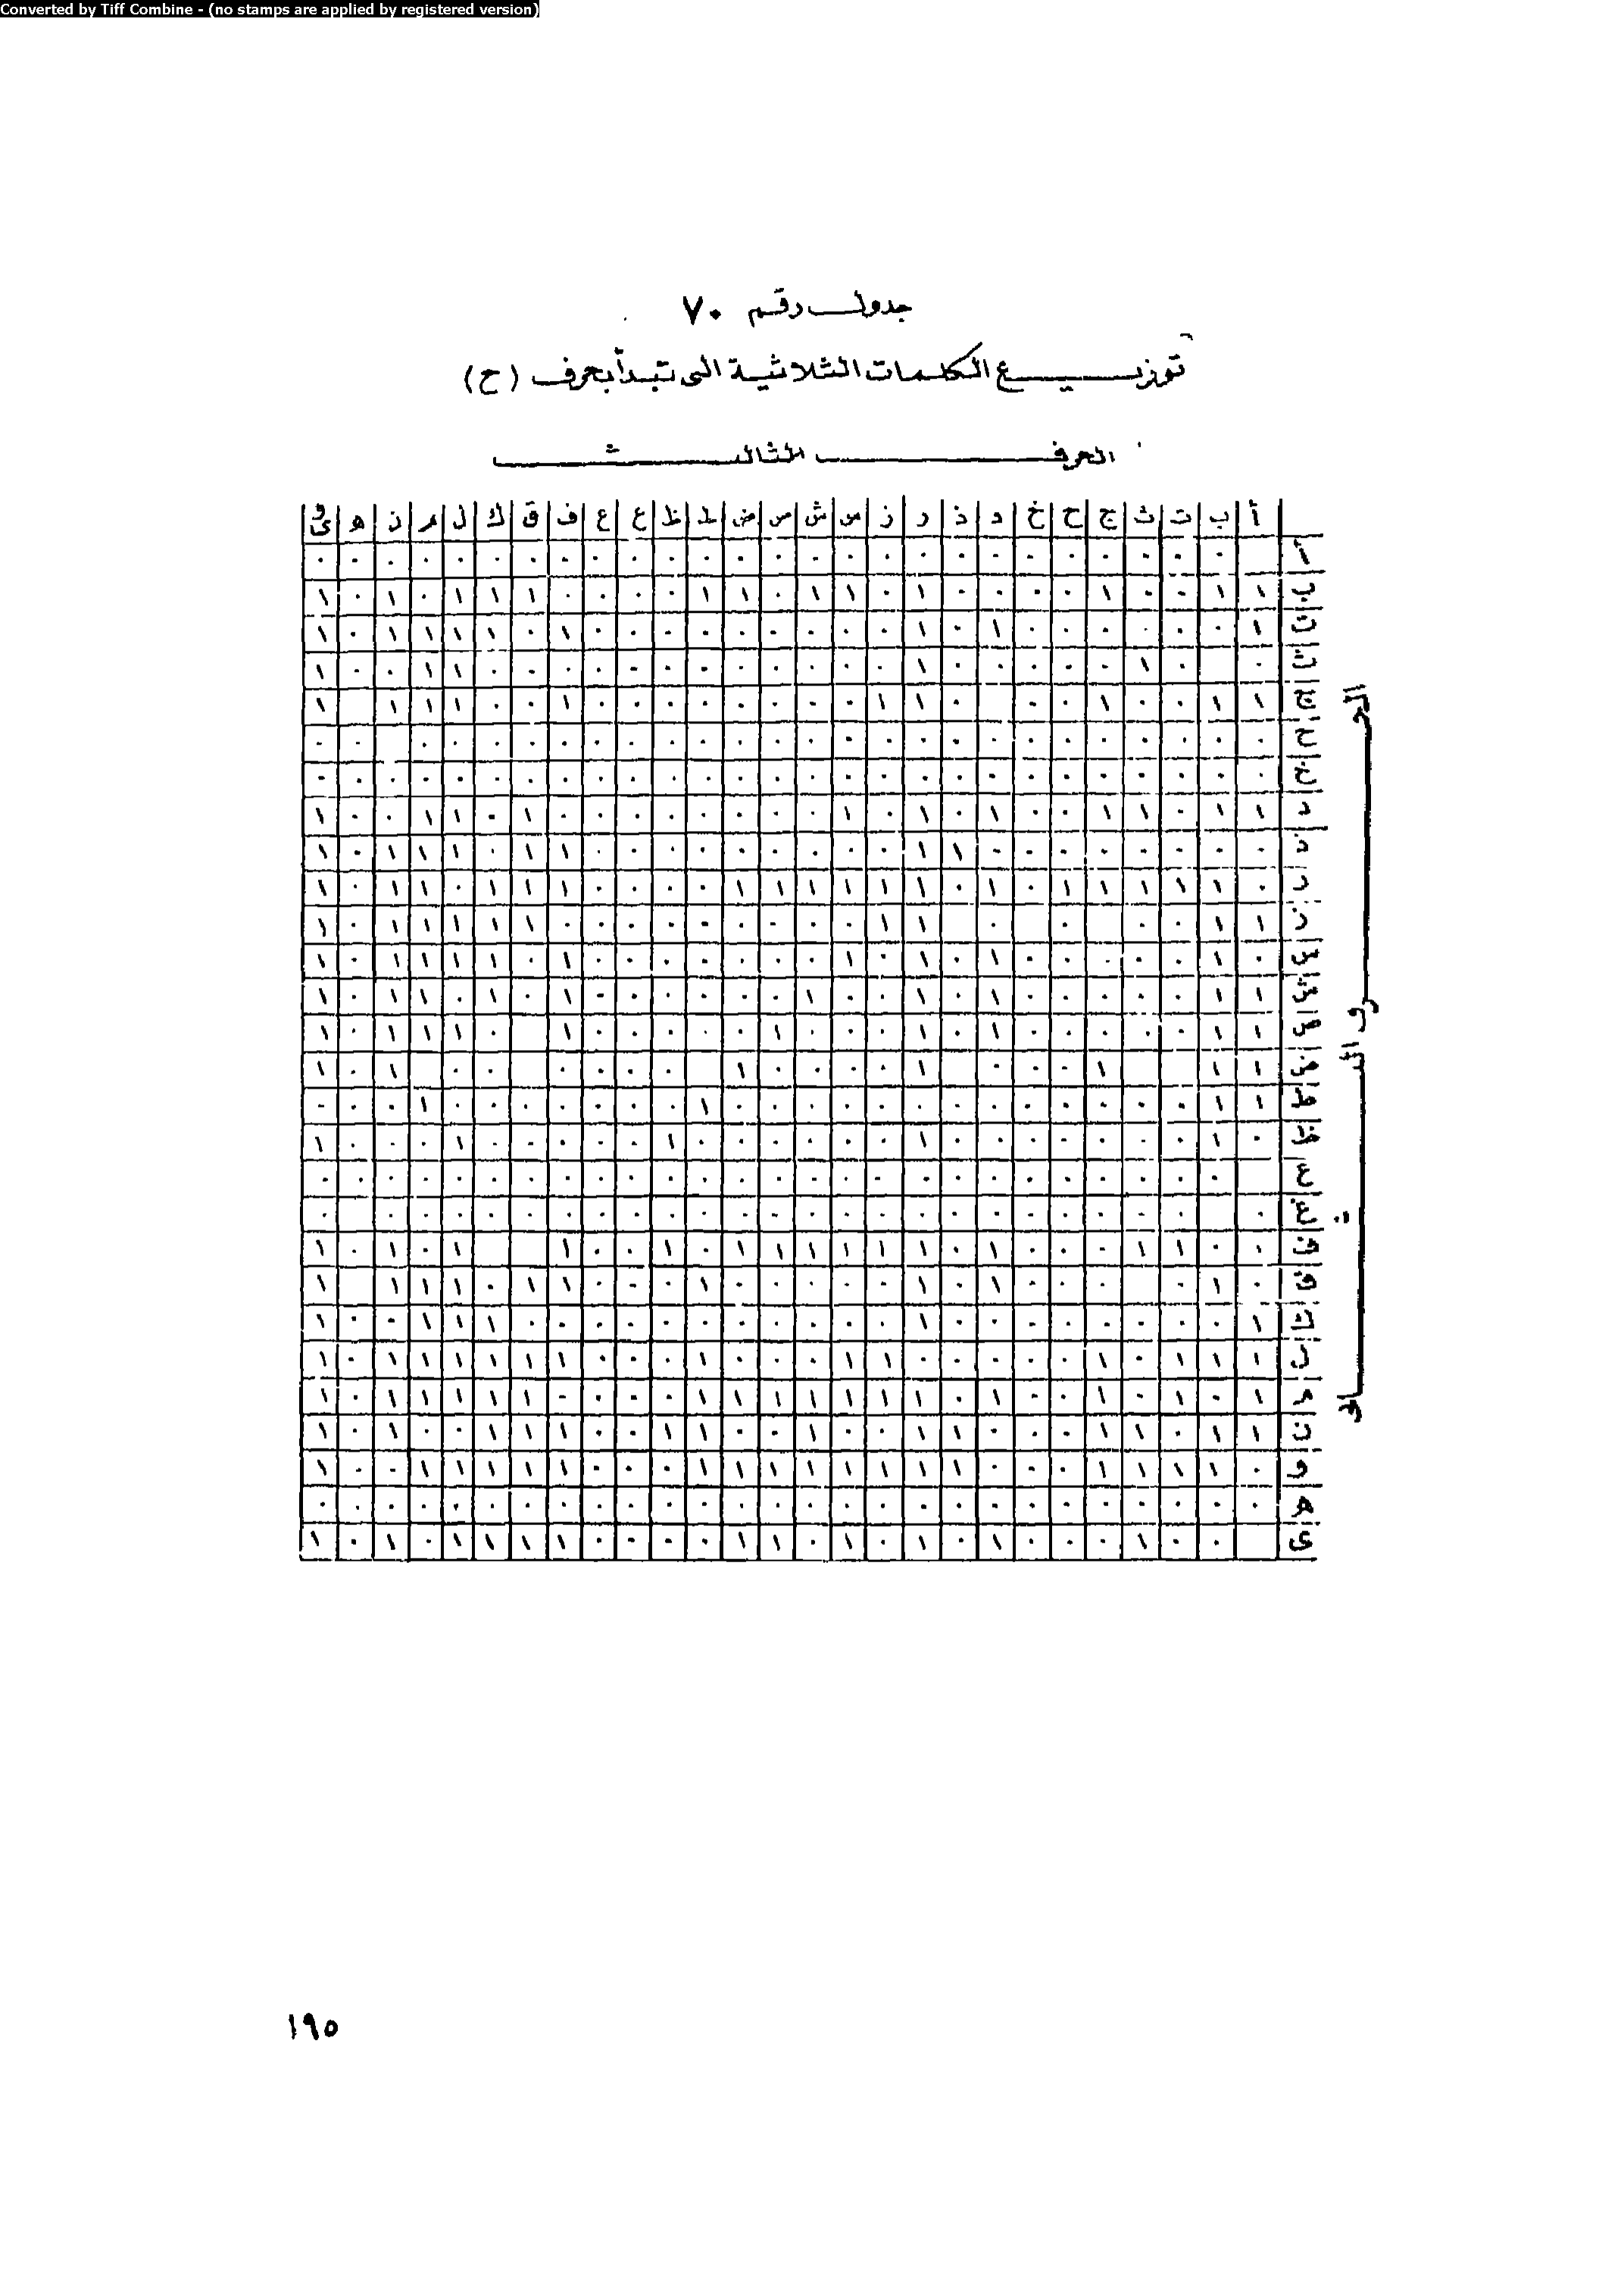 Converted by Tiff Combine - (no stamps are applied by registered version)
جدول رقم ٧٠
توزيع الكلمات الثلاثية التى تبدأ بحرف (ح)
الحرف الثالث
أ ب ت ث ج ح خ د ذ ر ز س ش ص ض ط ظ ع غ ف ق ك ل م ن ه وى
الحرف الثانى
أ ٠ ٠ ٠ ٠ ٠ ٠ ٠ ٠ ٠ ٠ ٠ ٠ ٠ ٠ ٠ ٠ ٠ ٠ ٠ ٠ ٠ ٠ ٠ ٠ ٠ ٠
ب ١ ١ ٠ ٠ ١ ٠ ٠ ٠ ٠ ١ ٠ ١ ١ ٠ ١ ١ ٠ ٠ ٠ ٠ ١ ١ ١ ٠ ١ ٠ ١
ت ١ ٠ ٠ ٠ ٠ ٠ ٠ ١ ٠ ١ ٠ ٠ ٠ ٠ ٠ ٠ ٠ ٠ ٠ ١ ٠ ١ ١ ١ ١ ٠ ١
ث ٠ ٠ ١ ٠ ٠ ٠ ٠ ٠ ١ ٠ ٠ ٠ ٠ ٠ ٠ ٠ ٠ ٠ ٠ ٠ ٠ ١ ١ ٠ ٠ ١
ج ١ ١ ٠ ٠ ١ ٠ ٠ ٠ ١ ١ ٠ ٠ ٠ ٠ ٠ ٠ ٠ ٠ ١ ٠ ٠ ١ ١ ١ ١
ح ٠ ٠ ٠ ٠ ٠ ٠ ٠ ٠ ٠ ٠ ٠ ٠ ٠ ٠ ٠ ٠ ٠ ٠ ٠ ٠ ٠ ٠ ٠ ٠ ٠ ٠
خ ٠ ٠ ٠ ٠ ٠ ٠ ٠ ٠ ٠ ٠ ٠ ٠ ٠ ٠ ٠ ٠ ٠ ٠ ٠ ٠ ٠ ٠ ٠ ٠ ٠ ٠ ٠
د ١ ١ ٠ ١ ١ ٠ ٠ ١ ٠ ١ ٠ ١ ٠ ٠ ٠ ٠ ٠ ٠ ٠ ٠ ١ ٠ ١ ١ ٠ ٠ ١
ذ ٠ ٠ ٠ ٠ ٠ ٠ ٠ ٠ ١ ١ ٠ ٠ ٠ ٠ ٠ ٠ ٠ ٠ ٠ ١ ١ ٠ ١ ١ ١ ٠ ١
ر ٠ ١ ١ ١ ١ ١ ٠ ١ ٠ ١ ١ ١ ١ ١ ١ ٠ ٠ ٠ ٠ ١ ١ ١ ٠ ١ ١ ٠ ١
ز ١ ١ ٠ ٠ ٠ ٠ ١ ١ ٠ ٠ ٠ ٠ ٠ ٠ ٠ ٠ ٠ ١ ١ ١ ١ ١ ٠ ١
س ٠ ١ ٠ ٠ ٠ ٠ ٠ ١ ٠ ١ ٠ ١ ٠ ٠ ٠ ٠ ٠ ٠ ٠ ١ ٠ ١ ١ ١ ١ ٠ ١
ش ١ ١ ٠ ٠ ٠ ٠ ٠ ١ ٠ ١ ٠ ٠ ١ ٠ ٠ ٠ ٠ ٠ ٠ ١ ٠ ١ ٠ ١ ١ ٠ ١
ص ١ ١ ٠ ٠ ٠ ٠ ٠ ١ ٠ ١ ٠ ٠ ٠ ١ ٠ ٠ ٠ ٠ ٠ ١ ٠ ١ ١ ١ ٠ ١
ض ١ ١ ١ ٠ ٠ ٠ ١ ٠ ٠ ٠ ٠ ١ ٠ ٠ ٠ ٠ ٠ ٠ ١ ٠ ١
ط ١ ١ ٠ ٠ ٠ ٠ ٠ ٠ ٠ ٠ ٠ ٠ ٠ ٠ ٠ ١ ٠ ٠ ٠ ٠ ٠ ٠ ٠ ١ ٠ ٠ ٠
ظ ٠ ١ ٠ ٠ ٠ ٠ ٠ ٠ ٠ ١ ٠ ٠ ٠ ٠ ٠ ٠ ١ ٠ ٠ ٠ ٠ ٠ ١ ٠ ٠ ٠ ١
ع ٠ ٠ ٠ ٠ ٠ ٠ ٠ ٠ ٠ ٠ ٠ ٠ ٠ ٠ ٠ ٠ ٠ ٠ ٠ ٠ ٠ ٠ ٠ ٠ ٠ ٠
غ ٠ ٠ ٠ ٠ ٠ ٠ ٠ ٠ ٠ ٠ ٠ ٠ ٠ ٠ ٠ ٠ ٠ ٠ ٠ ٠ ٠ ٠ ٠ ٠ ٠ ٠
ف ٠ ٠ ١ ١ ٠ ٠ ٠ ١ ٠ ١ ١ ١ ١ ١ ١ ٠ ١ ٠ ٠ ١ ١ ٠ ١ ٠ ١
ق ٠ ١ ٠ ٠ ٠ ٠ ١ ٠ ١ ٠ ٠ ٠ ٠ ٠ ١ ٠ ٠ ٠ ١ ١ ٠ ١ ١ ١ ١
ك ١ ٠ ٠ ٠ ٠ ٠ ٠ ٠ ٠ ١ ٠ ٠ ٠ ٠ ٠ ٠ ٠ ٠ ٠ ٠ ٠ ١ ١ ١ ٠ ٠ ١
ل ١ ١ ١ ٠ ١ ٠ ٠ ٠ ٠ ٠ ١ ١ ٠ ٠ ٠ ١ ٠ ٠ ٠ ١ ١ ١ ١ ١ ١ ٠ ١
م ١ ٠ ١ ٠ ١ ٠ ٠ ١ ٠ ١ ١ ١ ١ ١ ١ ١ ٠ ٠ ٠ ٠ ١ ١ ١ ١ ١ ٠ ١
ن ١ ١ ٠ ١ ١ ٠ ٠ ٠ ١ ١ ٠ ٠ ١ ٠ ٠ ١ ١ ٠ ٠ ١ ١ ١ ٠ ٠ ١ ٠ ١
و ٠ ١ ١ ١ ١ ٠ ٠ ٠ ١ ١ ١ ١ ١ ١ ١ ١ ٠ ٠ ٠ ١ ١ ١ ١ ١ ٠ ٠ ١
ه ٠ ٠ ٠ ٠ ٠ ٠ ٠ ٠ ٠ ٠ ٠ ٠ ٠ ٠ ٠ ٠ ٠ ٠ ٠ ٠ ٠ ٠ ٠ ٠ ٠ ٠ ٠
ى ٠ ٠ ١ ٠ ٠ ٠ ١ ٠ ١ ٠ ١ ٠ ١ ١ ٠ ٠ ٠ ٠ ١ ١ ١ ١ ٠ ١ ٠ ١
١٩٥